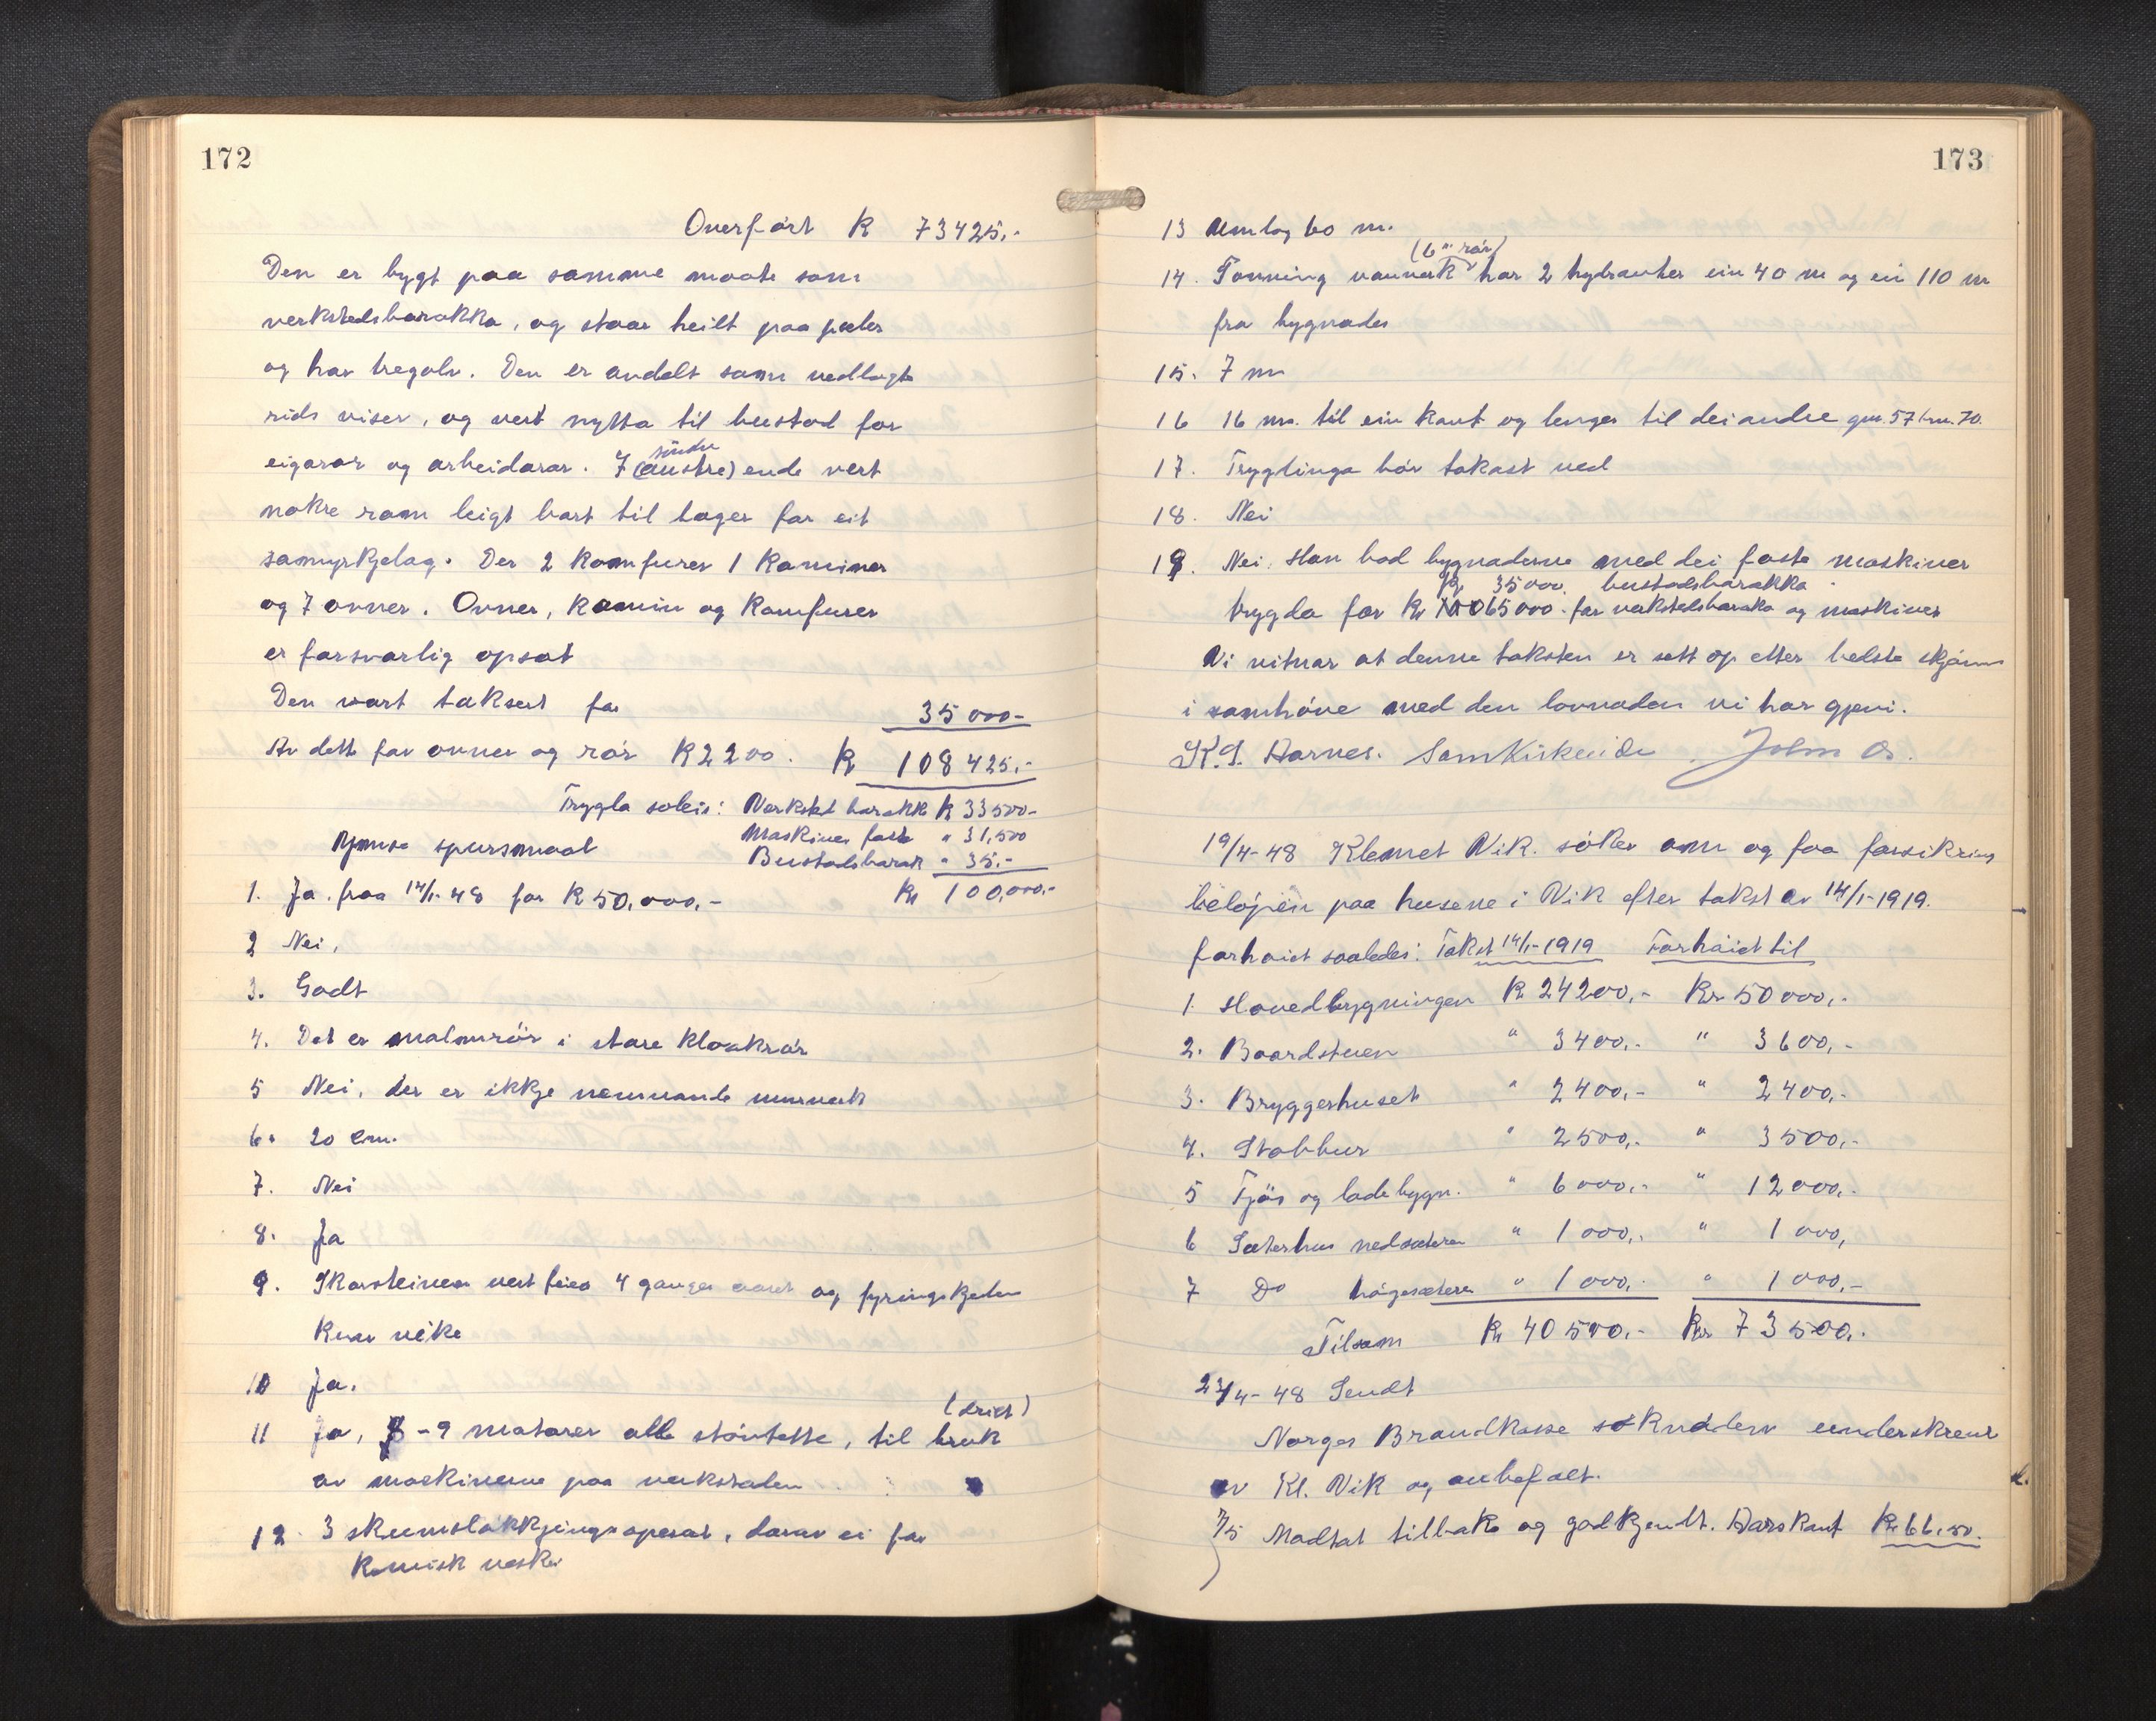 172
Overført K 73425,-
Den er bygt paa samme maate som
verkstedsbarakka, og staar heilt paa pæler
og har tregolv. Den er avdelt som vedlagte
rids viser, og vert nytta til bustad for
eigarar og arbeidarar. I (austre) ende vert
søndre
nokre rom leigt bort til lager for eit
samyrkjelag. Der 2 komfurer 1 Kaminer
og 7 ovner. Ovner, Kamin og Komfurer
er forsvarlig opsat
Den vart taksert for 35 000-
Av dette for ovner og rør K 2200. K 108 425,-
Trygla soleis: Verksted barakk K 33500-
Maskiner faste " 31,500
Ymse spursmaal
Bustadsbarak " 35,-
1. Ja. fraa 14/1-48 for K 50,000,-
Kr 100,000,-
2 Nei,
3. Godt
4. Det er malmrør i store kloakrør
5 Nei, der er ikkje nemnande murverk
6. 20 cm.
7. Nei
8. Ja
9. Skorsteinen vert feiea 4 ganger aaret og fyringskjelen
kvar veke
10 Ja.
(drift)
11 Ja, 8-9 motorer alle støvtette, til bruk
av maskinerne paa verkstaden
12. 3 skumsløkkjingsaperat, derav ei for
Kemisk veske
173
13 Umlag 60 m.
(6" rør)
14. Tonning vanverk har 2 hydranter ein 40 m og ein 110 m
fra bygnaden
15. 7 m
16 16 m. til ein kant og lenger til dei andre gm. 57 bm. 70.
17. Tryglinga bør takast ved
18. Nei
19. Nei. Han bad bygnaderne med dei faste maskiner
Kr 35000. bustadsbarakka
trygda for Kr 65000. for verkstedsbaraka og maskiner
Vi vitnar at denne taksten er sett op etter beste skjønn
i samhøve med den lovnaden vi har gjevi.
K. J. Aarnes. Sam Kirkeide John Os.
19/4-48 Klemet Vik. søker om og faa forsikrings
beløpen paa husene i Vik efter takst av 14/1-1919.
forhøiet saaledes: Takst 14/1-1919 Forhøiet til
1. Hovedbygningen K 24200,- Kr 50000,-
2. Boardstuen " 3400,- " 3600,-
3. Bryggerhuset " 2400,- " 2400,-
4. Stabbur " 2500,- " 3500,-
5 Fjøs og ladebygn. " 6000,- " 12000,-
6 Sæterhus nedsætern " 1000,- " 1000,
7 Do høgesætern " 1000,- " 1000,-
Tilsam Kr 40500,- Kr 73500,-
23/4-48 Sendt
Norges Brandkasse søknaden underskreve
av Kl. Vik og anbefalt.
7/5 Modtat tilbake og godkjendt. Aarskont Kr 66,50.